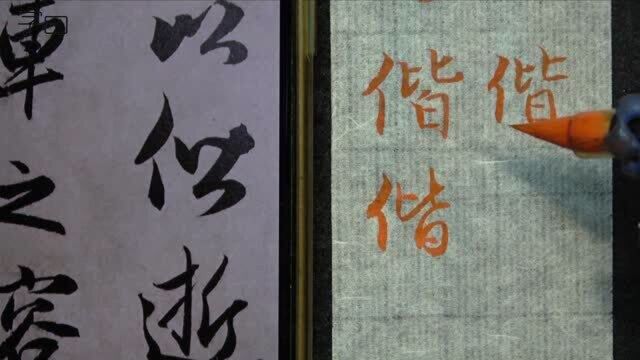 偕
偕偕
以偕逝
車之容